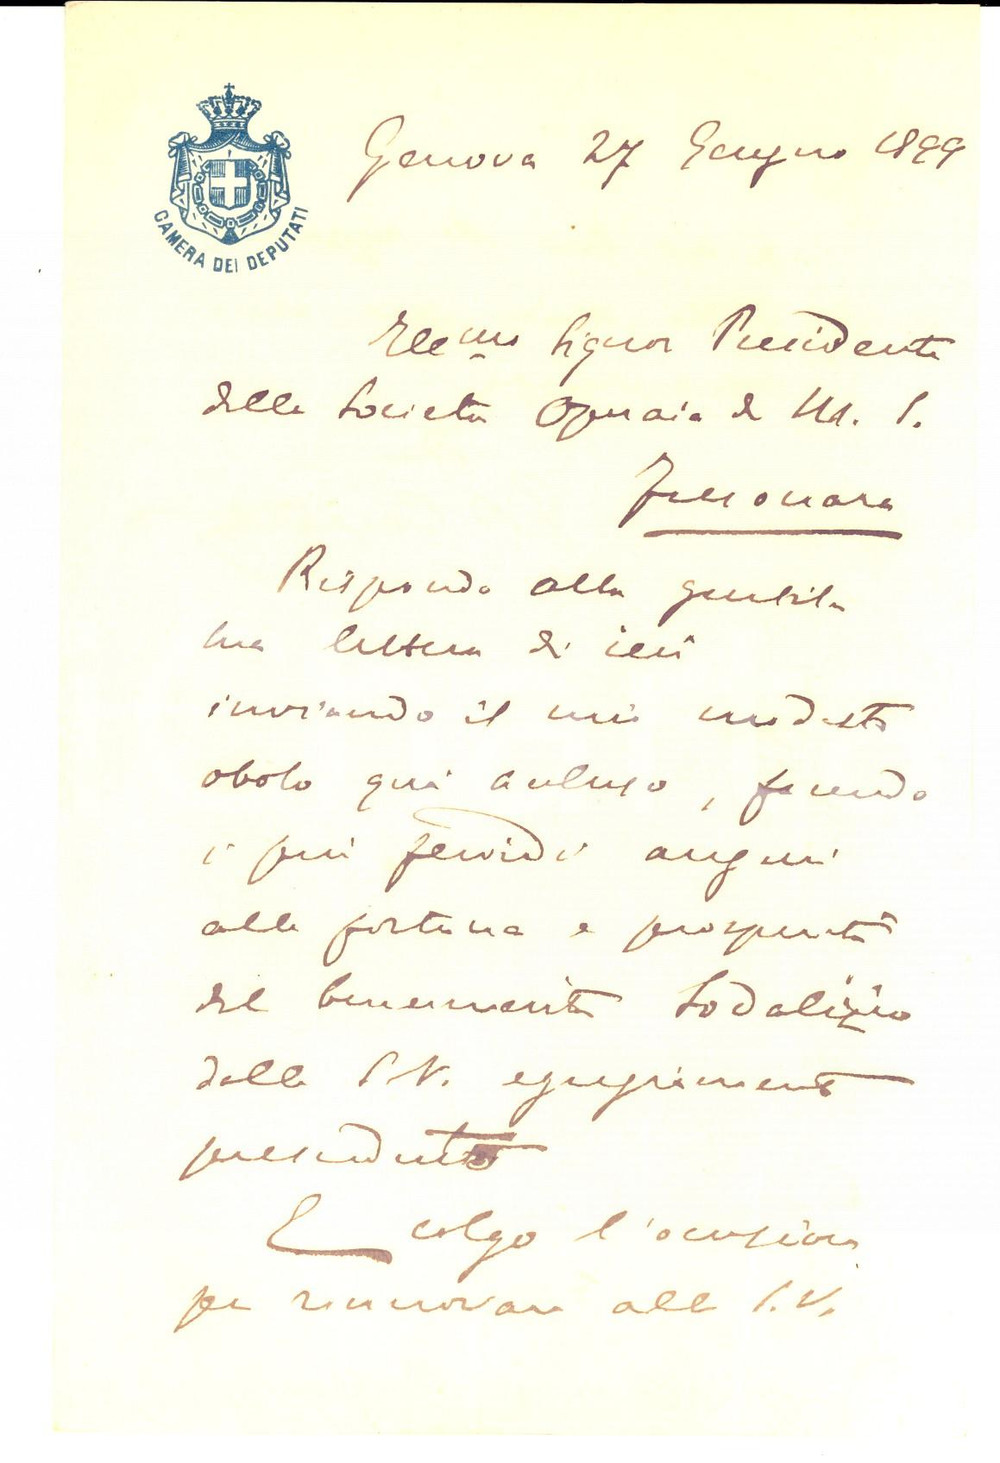 CAMERA DEI DEPUTATI
Genova 27 Giugno 1899
Ill.mo Signor Presidente
della Società Operaia di M. S.
Rispondo alla gentile
sua lettera di ieri
inviando il mio modesto
obolo qui accluso, facendo
i più fervidi auguri
alla fortuna e prosperità
del benemerito Sodalizio
dalla S. V. egregiamente
presieduto
E colgo l'occasione
per rinnovare alla S. V.